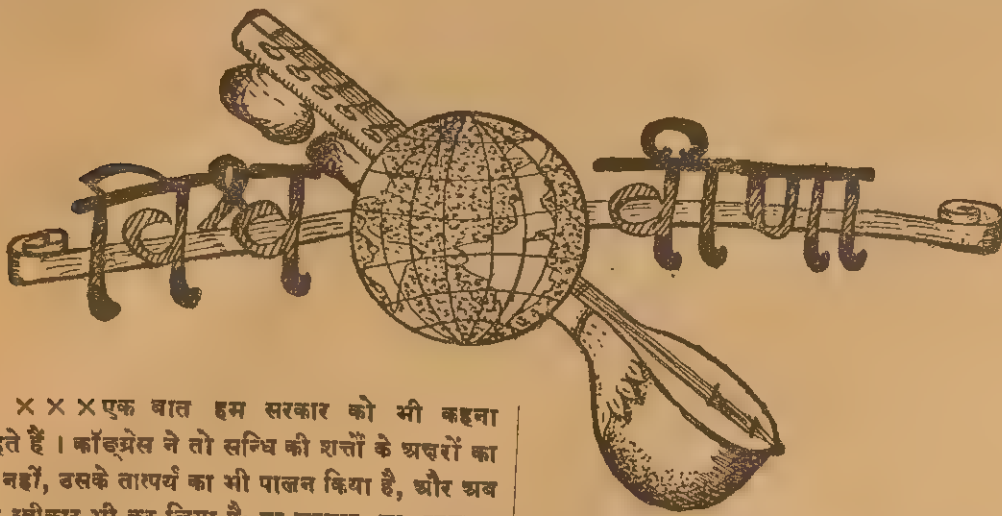 विश्व वीणा
× × × एक बात हम सरकार को भी कहना
हते हैं । कॉङ्ग्रेस ने तो सन्धि की शर्त्तों के अक्षरों का
नहीं, उसके तात्पर्य का भी पालन किया है, और अब
स्वीकार भी कर लिया है